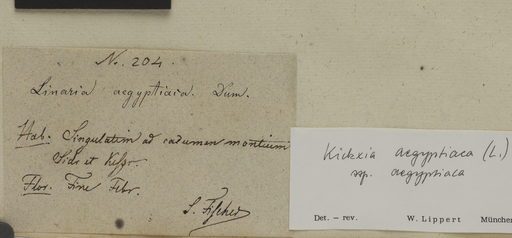 No. 204.
Linaria aegyptiaca. Dum.
Hab. Singulatim ad cacumen montium
Sidr et
Flor. Fine Febr.
S. Fischer
Kickxia aegyptiaca (L.)
ssp. aegyptiaca
Det. – rev. W. Lippert München